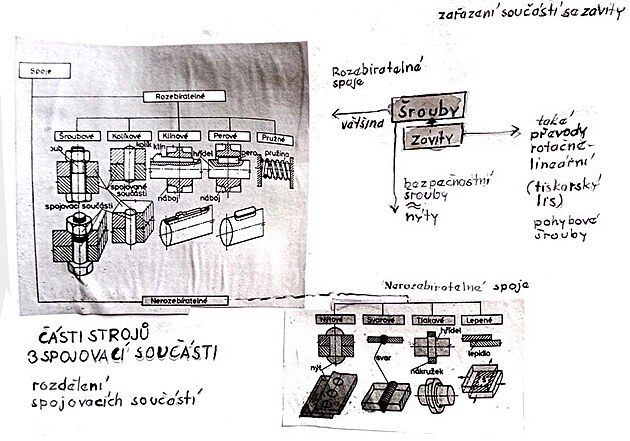 zařazení součástí se závity
Spoje
Rozebíratelné
Šroubové
Kolíkové
Klínové
Perové
Pružné
šroub
kolík
klín
hřídel
pero
pružina
spojované
součásti
spojovací součásti
náboj
náboj
Nerozebíratelné
Rozebíratelné
spoje
většina
Šrouby
Závity
také
převody
rotačně-
lineární
(tiskařský
lis)
pohybové
šrouby
bezpečnostní
šrouby
≈
nýty
"Nerozebíratelné" spoje
Nýtové
Svarové
Tlakové
Lepené
hřídel
nýt
svar
nákružek
lepidlo
ČÁSTI STROJŮ
3 SPOJOVACÍ SOUČÁSTI
rozdělení
spojovacích součástí